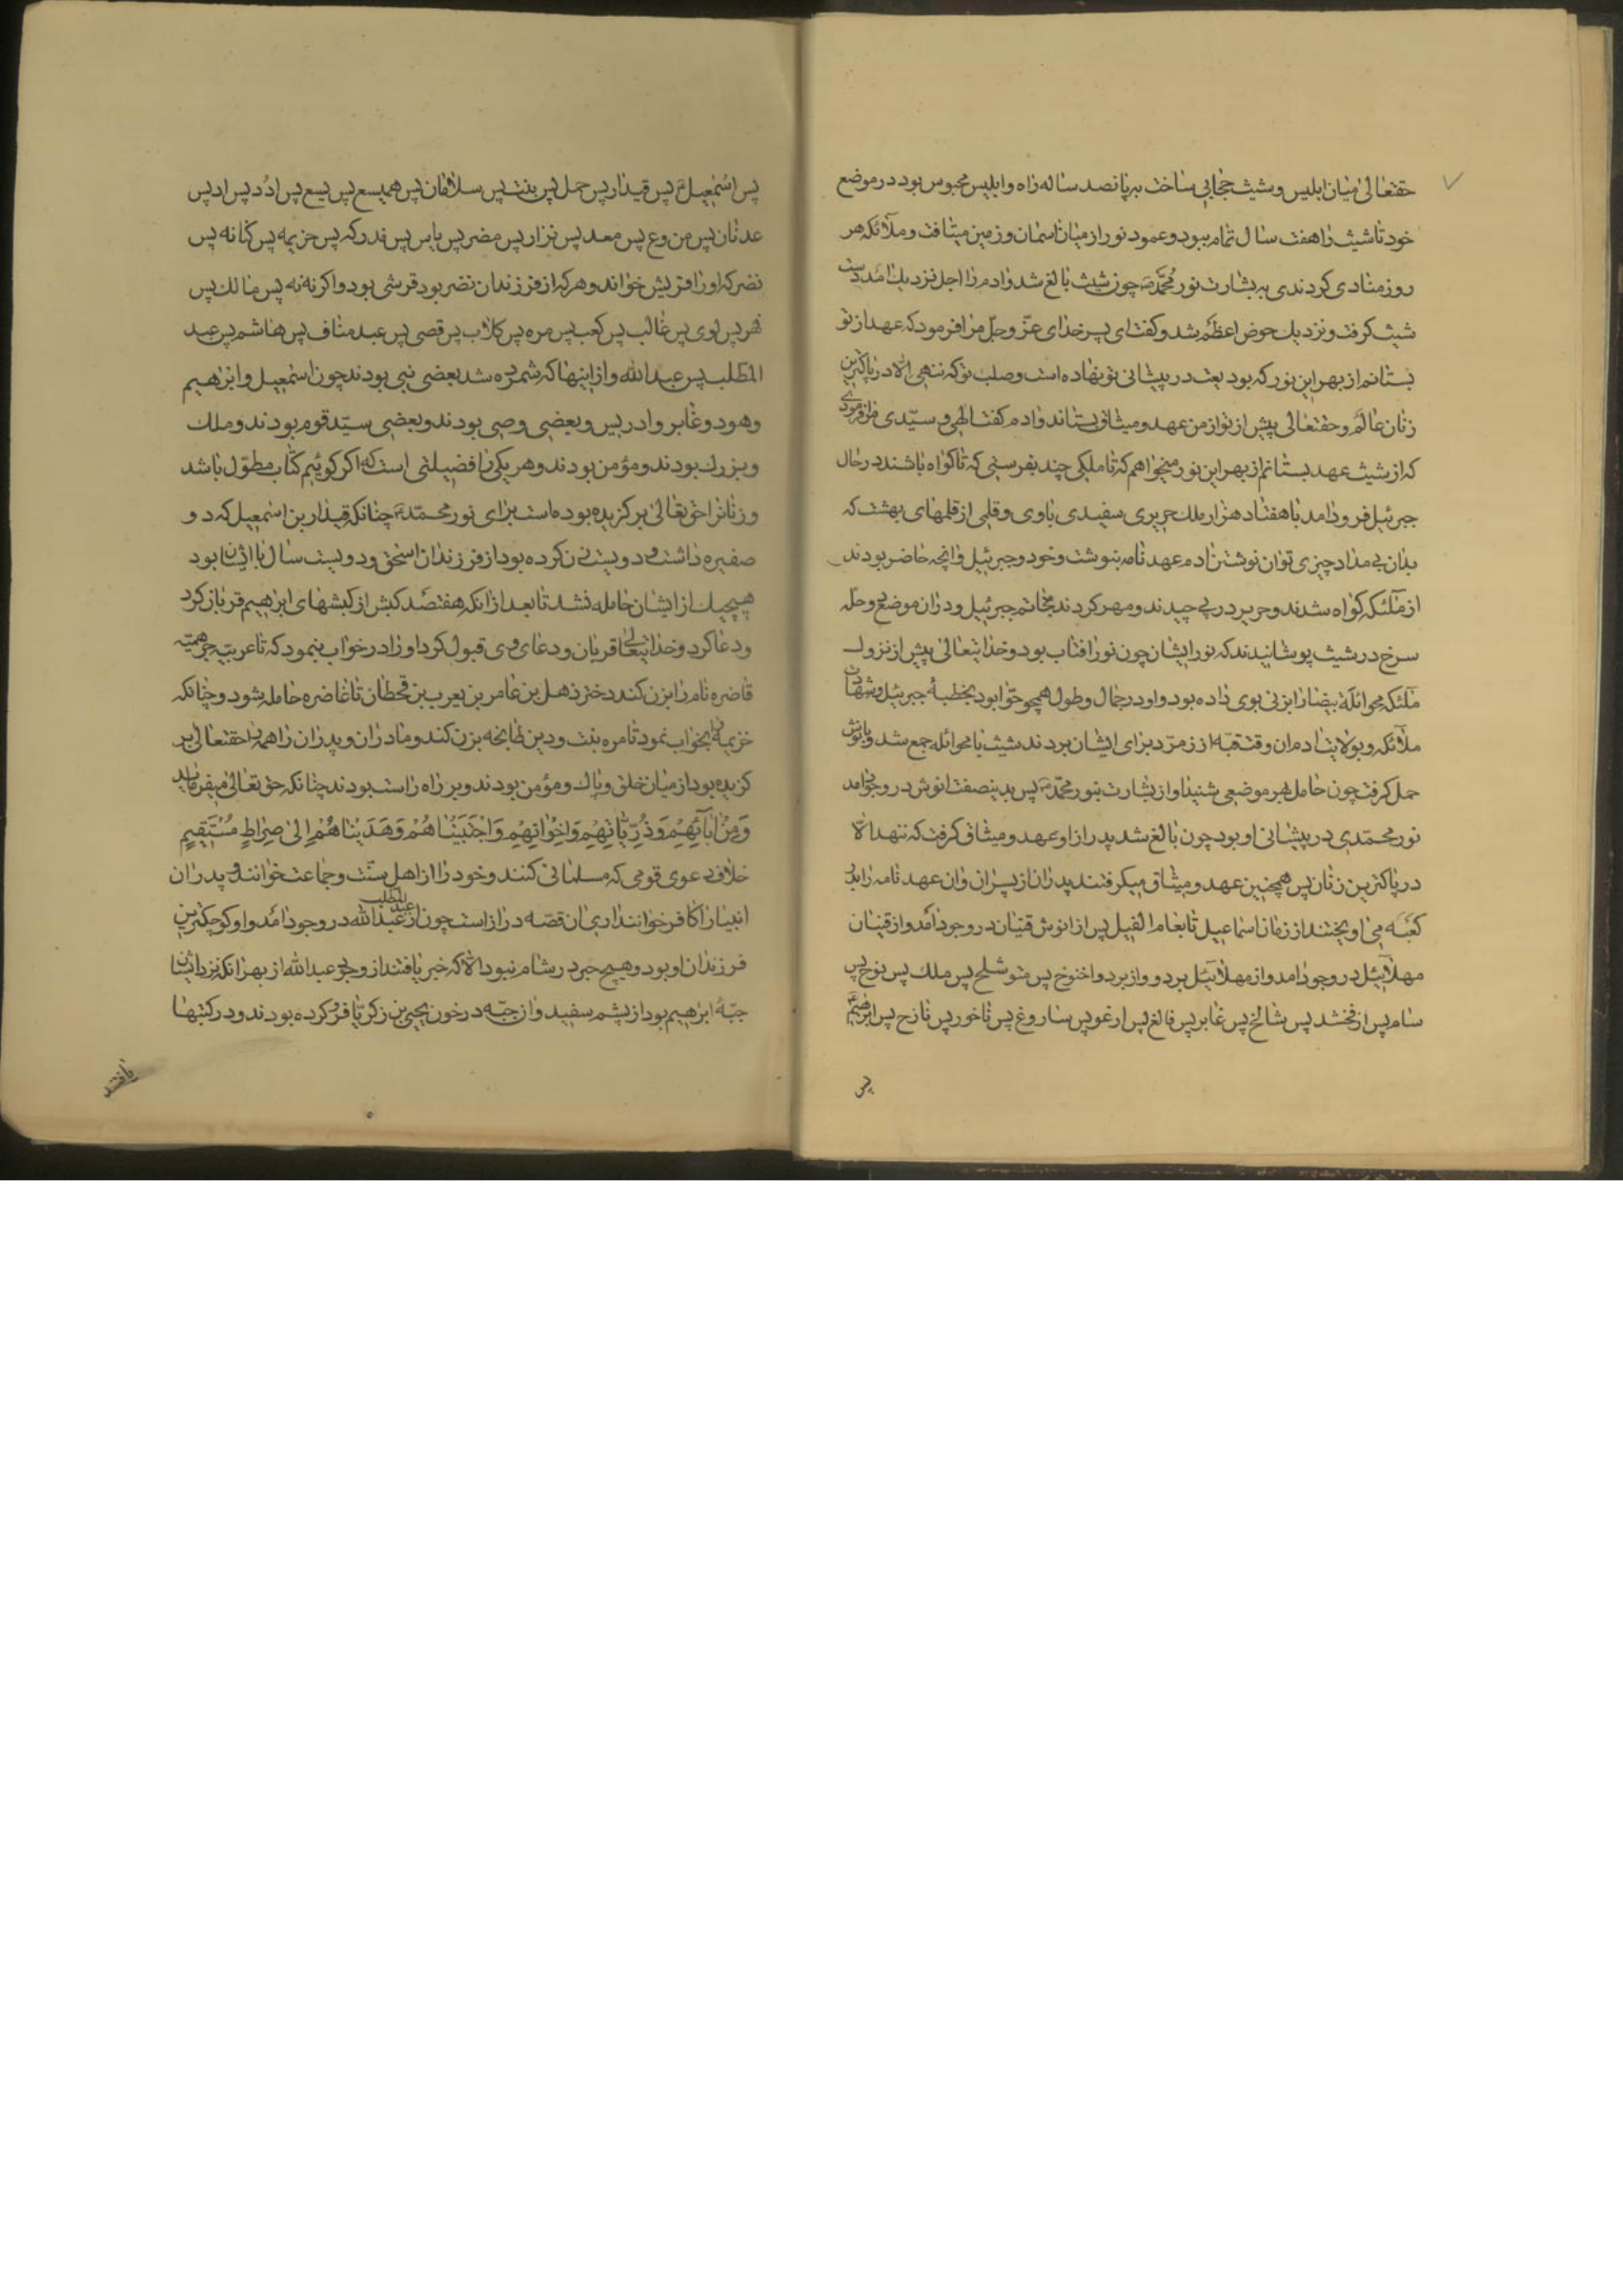 حقتعالی میان ابلیس و شیث حجابی ساخت بر پانصد ساله راه و ابلیس محبوس بود در موضع
خود تا شیث را هفت سال تمام ببود و عمود نور از میان اسمان و زمین میتافت و ملائکه هر
روز منادی کردندی به بشارت نور محمد ص چون شیث بالغ شد و ادم را اجل نزدیک امد دست
شیث کرفت و نزدیک حوض اعظم شد و کفت ای پسر خدای عز و جل مرا فرمود که عهد از تو
بستانم از بهر این نور که بودیعت در پیشانی تو نهاده است و صلب تو که ننهی الا در پاکترین
زنان عالم و حقتعالی پیش از تو از من عهد و میثاق بستاند و ادم کفت الهی و سیدی مرا فرمودی
که از شیث عهد بستانم از بهر این نور میخواهم که تا ملکی چند بفرستی که تا کواه باشند در حال
جبرئیل فرود امد با هفتاد هزار ملک حریری سفیدی باوی و قلمی از قلمهای بهشت که
بدان بی مداد چیزی توان نوشتن ادم عهد نامه بنوشت و خود و جبرئیل و انچه حاضر بودند
از ملئکه کواه شدند و حریر در پی چیدند و مهر کردند بخاتم جبرئیل و دران موضع دو حله
سرخ در شیث پوشانیدند که نور ایشان چون نور افتاب بود و خدایتعالی پیش از نزول
ملئکه محوائله بیضا را بزنی بوی داده بود و او در جمال و طول همچو حوا بود بخطبه جبرئیل و شهادت
ملائکه و بولایت ادم ان وقت قبه از زمرد برای ایشان بردند شیث با محوائله جمع شد و بانوش
حمل کرفت چون حامل هر موضعی شنید اواز بشارت بنور محمد ص پس بدینصفت انوش در وجود امد
نور محمدی در پیشانی او بود چون بالغ شد پدر از او عهد و میثاق کرفت که ننهد الا
در پاکترین زنان پس همچنین عهد و میثاق میکرفتند پدران از پسران و ان عهد نامه را بدر
کعبه می اویختند از زمان اسماعیل تا بعام الفیل پس از انوش قینان در وجود امد و از قینان
مهلائیل در وجود امد و از مهلائیل برد و و از برد و اخنوخ پس متوشلح پس ملک پس نوح پس
سام پس ارفخشد پس شالخ پس غابر پس فالغ پس ارغو پس ساروغ پس تاخور پس تارح پس ابرهیم
پس
پس اسمعیل پس قیدار پس حمل پس بنت پس سلامان پس همیسع پس یسع پس ادد پس اد پس
عدنان پس من وع پس معد پس نزار پس مضر پس یاس پس مدرکه پس خزیمه پس کنانه پس
نضر که او را قریش خواند و هر که از فرزندان نضر بود قرشی بود و اکر نه نه پس مالک پس
فهر پس لوی پس غالب پس کعب پس مره پس کلاب پس قصی پس عبد مناف پس هاشم پس عبد
المطلب پس عبد الله و از اینها که شمرده شد بعضی نبی بودند چون اسمعیل و ابرهیم
و هود و غابر و ادریس و بعضی وصی بودند و بعضی سید قوم بودند و ملک
و بزرک بودند و مؤمن بودند و هر یکی را فضیلتی است که اکر کوئیم کتاب مطول باشد
و زنانرا حق تعالی بر کزیده بوده است برای نور محمد چنانکه قیدار بن اسمعیل که دو
صفیره داشت و دویست زن کرده بود از فرزندان اسحق و دویست سال با ایشان بود
هیچیک از ایشان حامله نشد تا بعد از انکه هفتصد کبش از کبشهای ابرهیم قربان کرد
و دعا کرد و خدایتعالی قربان و دعای وی قبول کرد او را در خواب بنمود که تا عربیه جرهمیه
قاضره نام را بزن کند دختر ذهل بن عامر بن یعرب بن قحطان تا غاضره حامله شود و چنانکه
خزیمه را بخواب نمود تا مره بنت ود بن طابخه بزن کند و مادران و پدران را همه حقتعالی بر
کزیده بود از میان خلق و پاک و مؤمن بودند و بر راه راست بودند چنانکه حق تعالی میفرماید
وَمِنْ اٰبَآئِهِمْ وَذُرِّیَّاتِهِمْ وَاِخْوَانِهِمْ وَاجْتَبَیْنَاهُمْ وَهَدَیْنَاهُمْ اِلیٰ صِرَاطٍ مُسْتَقِیمٍ
خلاف دعوی قومی که مسلمانی کنند و خود را از اهل سنت و جماعت خوانند و پدران
انبیا را کافر خوانند اری ان قصه دراز است چون از عبد المطلب عبد الله در وجود امد و او کوچکترین
فرزندان او بود و هیچ حبر در شام نبود الا که خبر یافتند از وجود عبد الله از بهر انکه نزد ایشان
جبه ابرهیم بود از پشم سفید و ان جبه در خون یحیی بن زکریا فرو کرده بودند و در کتبها
یافتند